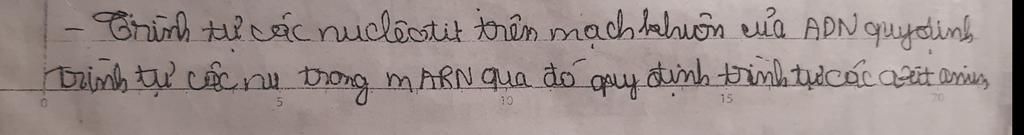 - Trình tự các nuclêotit trên mạch khuôn của ADN quy định
trình tự các nu trong mARN qua đó quy định trình tự các axit amin
0 5 10 15 20